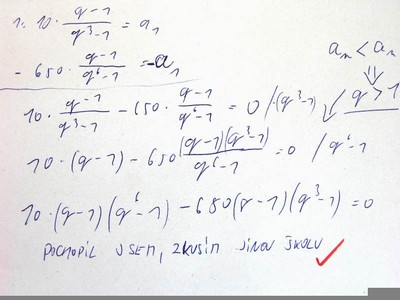 1: 10 · (q-1)/(q³-1) = a₁
- 650 · (q-1)/(q⁶-1) = -a₁
10 · (q-1)/(q³-1) - 650 · (q-1)/(q⁶-1) = 0 / · (q³-1)
q > 1
10 · (q-1) - 650 (q-1)(q³-1)/(q⁶-1) = 0 / q⁶-1
10 · (q-1)(q⁶-1) - 680(q-1)(q³-1) = 0
POCHOPIL JSEM, ZKUSÍM JINOU ŠKOLU